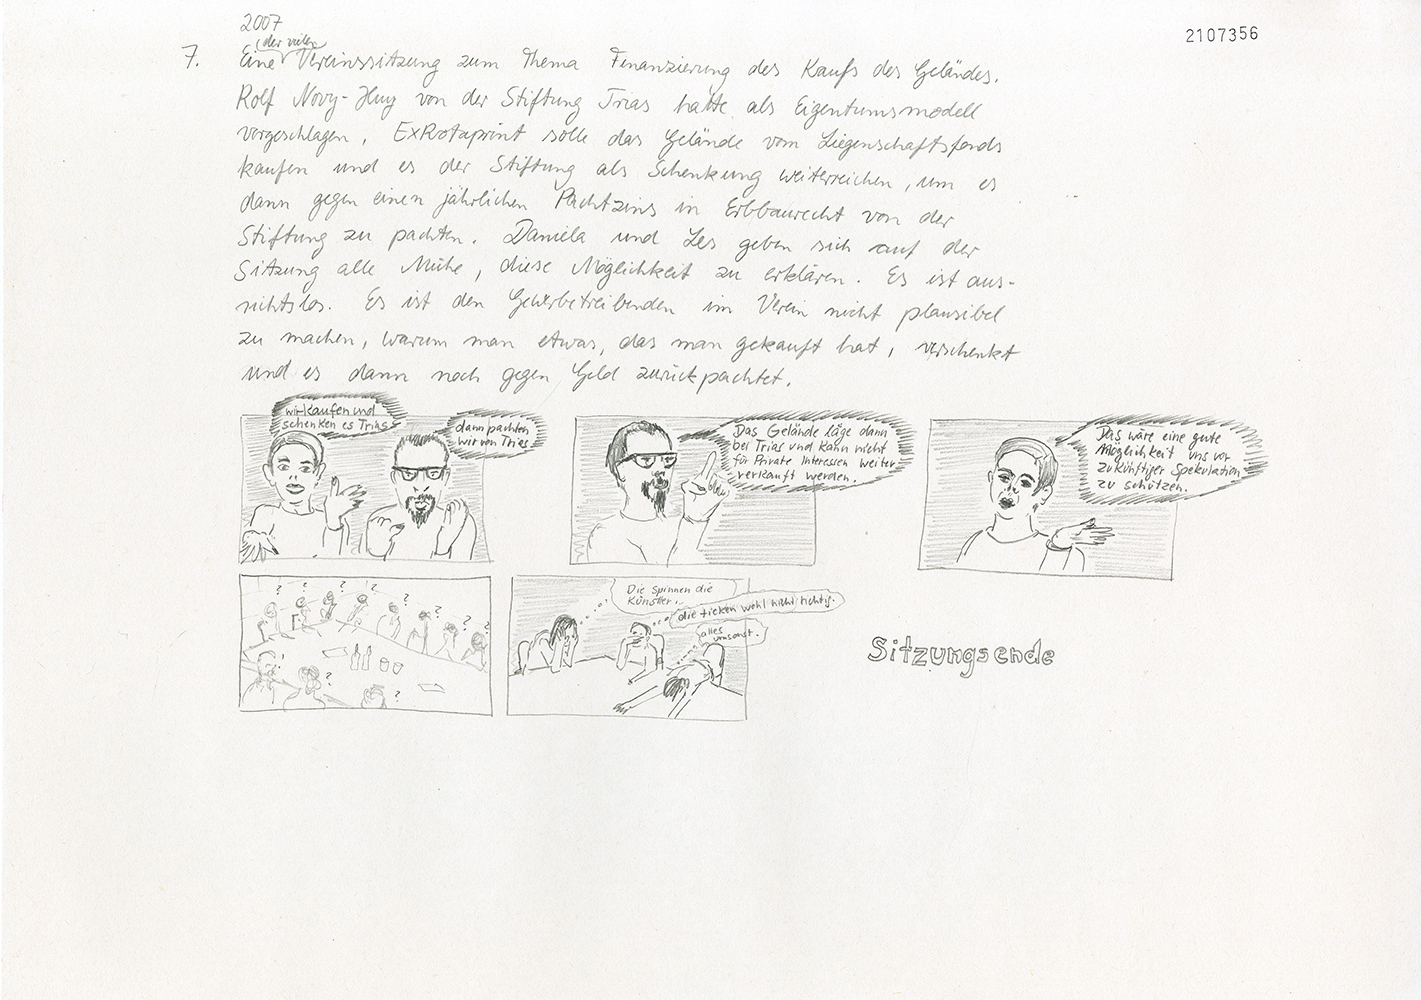 2007
2107356
(der vielen
7. Eine Vereinssitzung zum Thema Finanzierung des Kaufs des Geländes.
Rolf Novy-Huy von der Stiftung Trias hatte als Eigentumsmodell
vorgeschlagen, ExRotaprint solle das Gelände vom Liegenschaftsfonds
kaufen und es der Stiftung als Schenkung weiterreichen, um es
dann gegen einen jährlichen Pachtzins in Erbbaurecht von der
Stiftung zu pachten. Daniela und Les geben sich auf der
Sitzung alle Mühe, diese Möglichkeit zu erklären. Es ist aus-
sichtslos. Es ist den Gewerbetreibenden im Verein nicht plausibel
zu machen, warum man etwas, das man gekauft hat, verschenkt
und es dann noch gegen Geld zurückpachtet.
wir kaufen und
schenken es Trias
dann pachten
wir von Trias
Das Gelände läge dann
bei Trias und kann nicht
für Private Interessen weiter
verkauft werden.
Das wäre eine gute
Möglichkeit uns vor
zukünftiger Spekulation
zu schützen.
? ? ? ? ? ? ? ?
! ? ?
Die spinnen die
Künstler.
die ticken wohl nicht richtig.
alles
umsonst.
Sitzungsende